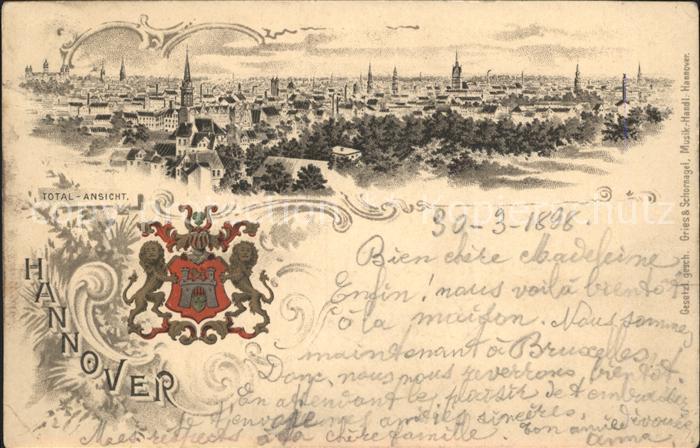 TOTAL-ANSICHT.
HANNOVER
Gesetzl. gesch. Gries & Schornagel, Musik-Handl. Hannover.
30-3-1898.
Bien chère Madeleine,
Enfin! nous voilà bientôt
à la maison. Nous sommes
maintenant à Bruxelles,
Donc, nous nous reverrons bientôt.
En attendant le plaisir de t'embrasser
je t'envoie mes amitiés sincères,
Ton amie dévouée
Mes respects à ta chère famille
Anna